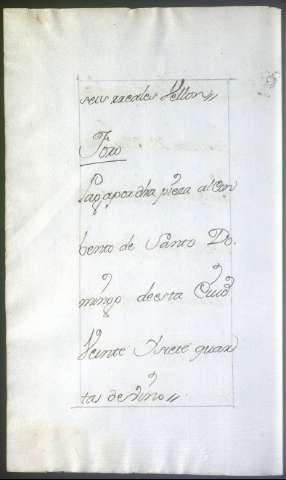 seis rreales Vellon,,
Foro
Paga por dha pieza al Con
bento de Santo Do,
mingo de esta Ciud
Veinte Y siete quar
tas de vino,,